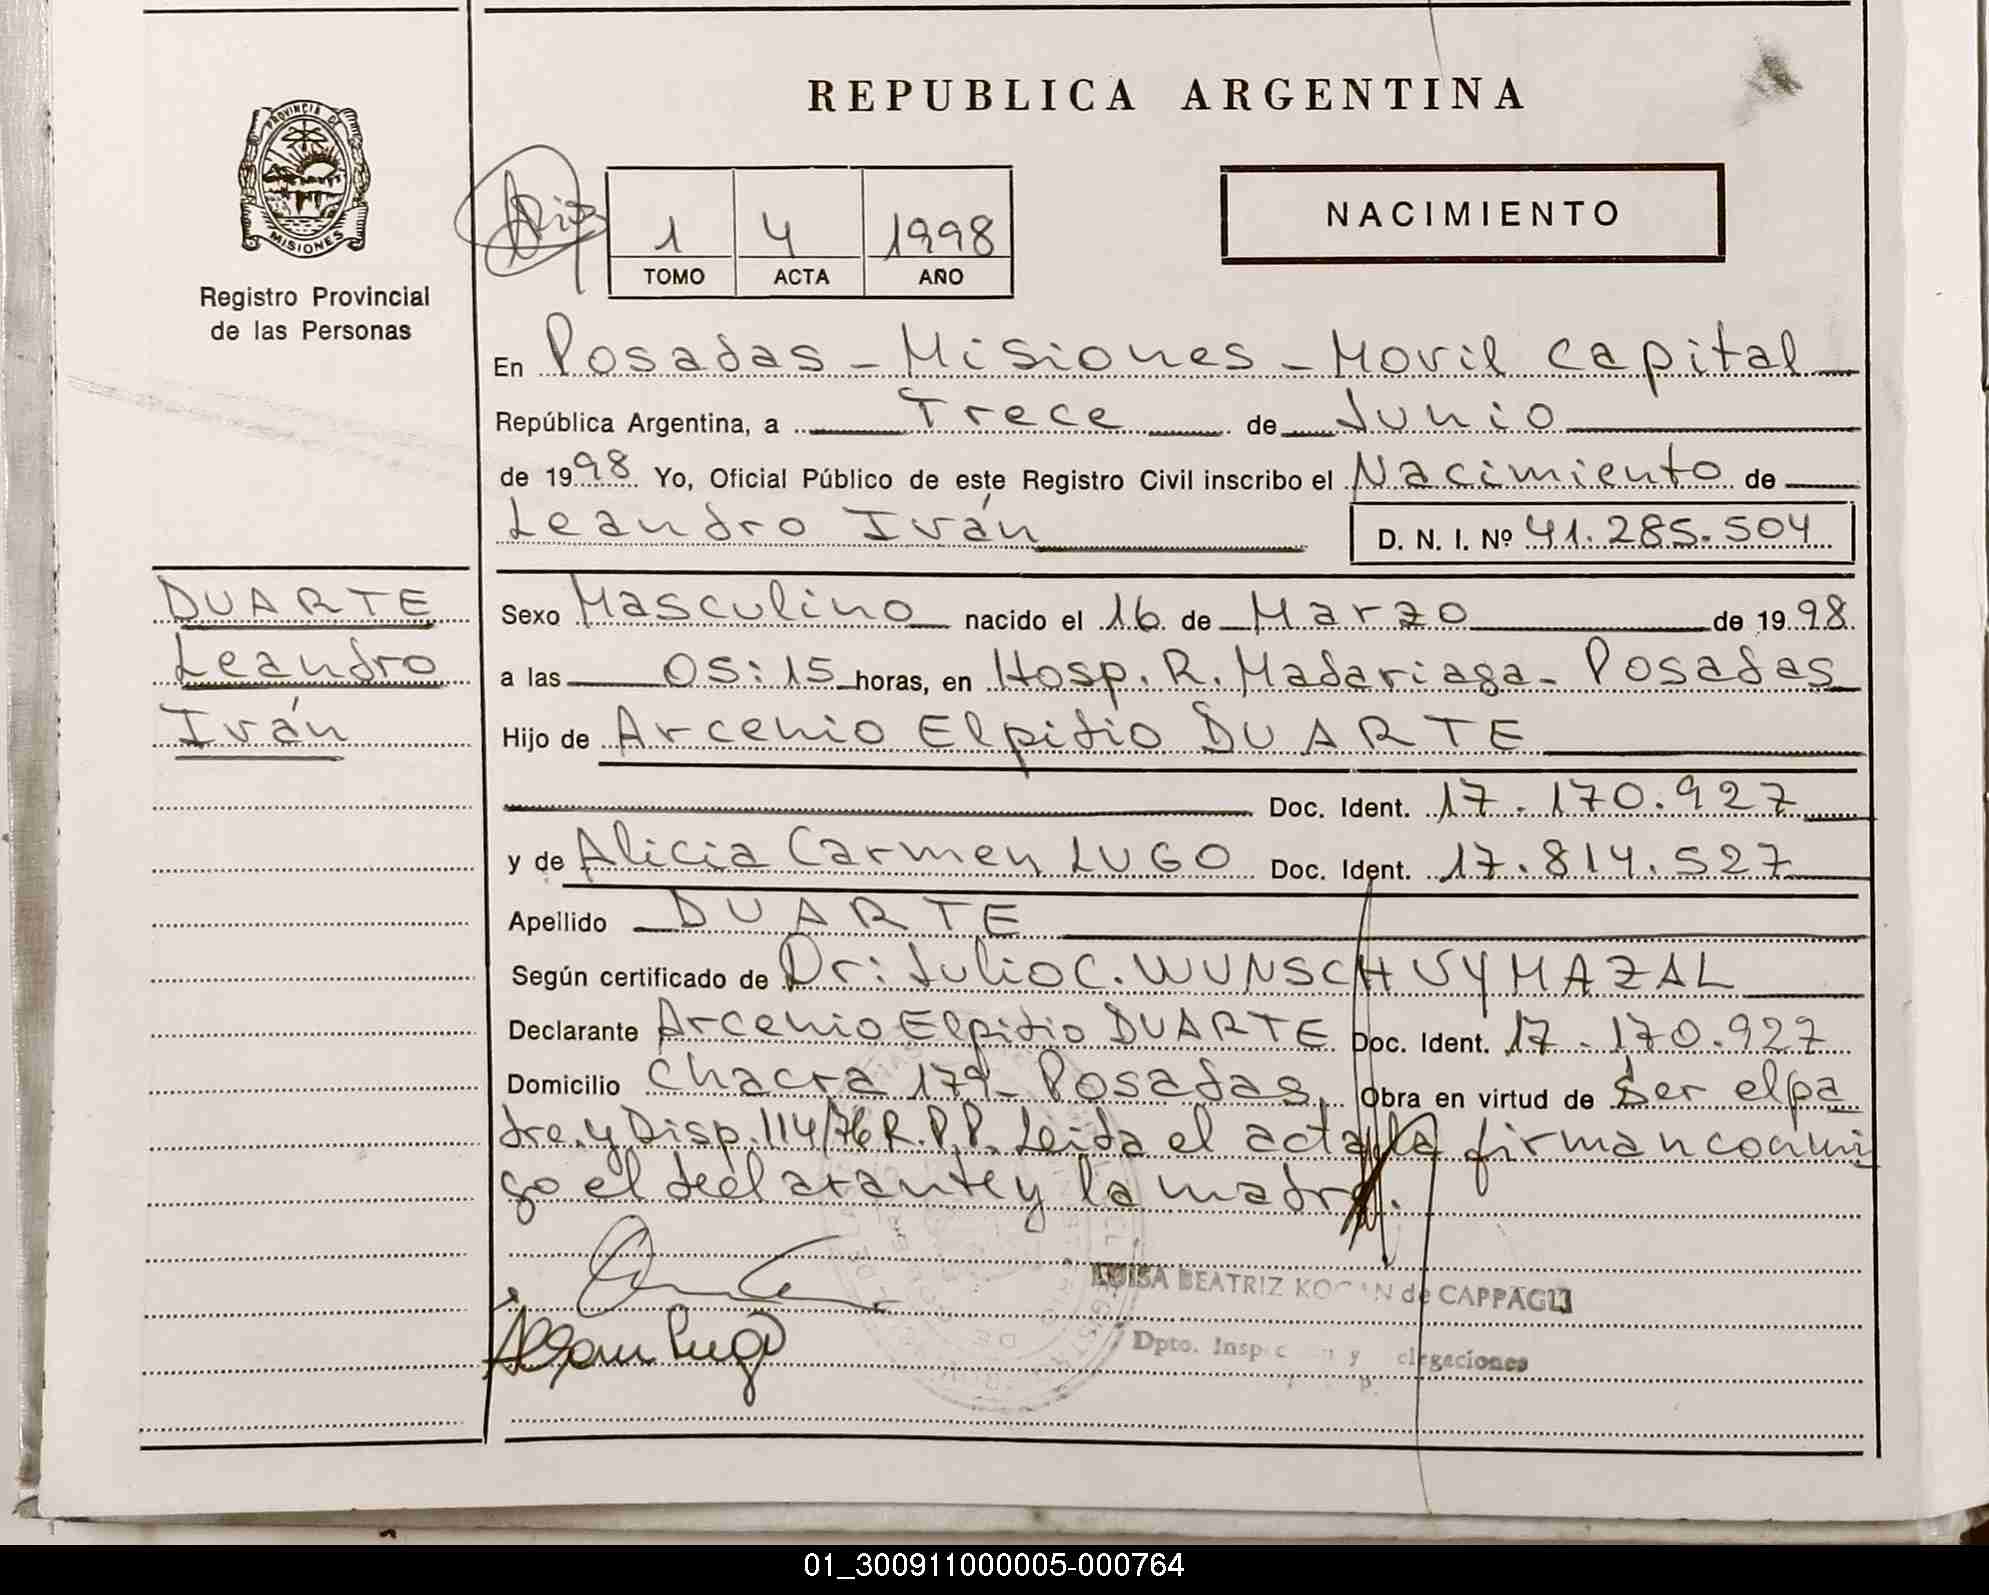 REPUBLICA ARGENTINA
PROVINCIA DE
MISIONES
Registro Provincial
de las Personas
1 4 1998
TOMO ACTA AÑO
NACIMIENTO
En Posadas - Misiones - Movil Capital
República Argentina, a Trece de Junio
de 1998 Yo, Oficial Público de este Registro Civil inscribo el Nacimiento de
Leandro Iván
D. N. I. Nº 41.285.504
DUARTE
Leandro
Iván
Sexo Masculino nacido el 16 de Marzo de 1998
a las 05:15 horas, en Hosp. R. Madariaga - Posadas
Hijo de Arcenio Elpidio DUARTE
Doc. Ident. 17.170.927
y de Alicia Carmen LUGO Doc. Ident. 17.814.527
Apellido DUARTE
Según certificado de Dr: Julio C. WUNSCH VYMAZAL
Declarante Arcenio Elpidio DUARTE Doc. Ident. 17.170.927
Domicilio Chacra 179 - Posadas. Obra en virtud de ser el pa
dre y Disp. 114/76 R.P.P. Leida el acta la firman conmi
go el declarante y la madre.
LUISA BEATRIZ KOGAN de CAPPAGLI
Dpto. Insp y elegaciones
Lugo
01_300911000005-000764